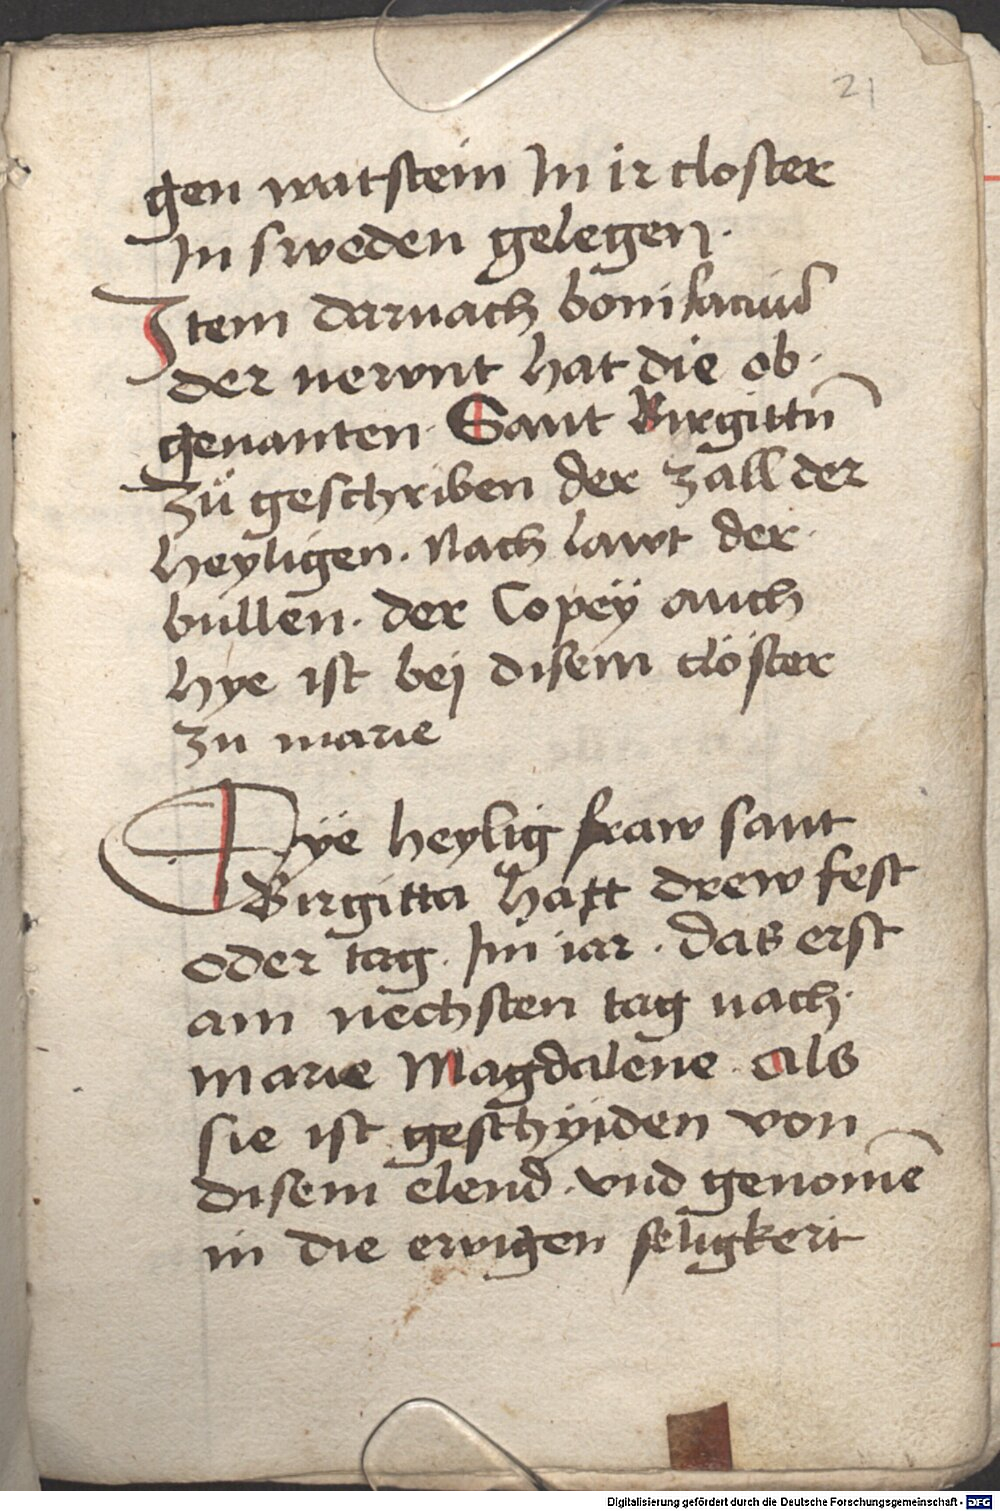 21
gen watstein In ir closter
In sweden gelegen.
Item darnach bonifacius
der newnt hat die ob.
genanten Sant Birgittn̄
zů geschriben der zall der
heyligen. Nach lawt der.
bullen. der Copeÿ auch
hye ist bej disem clöster
zu marie
Dÿe heylig fraw sant
Birgitta hatt drew fest
oder tag. Im iar. das erst
am nechsten tag nach.
marie Magdalene. Als
sie ist geschÿiden von
disem elend. vnd genom̄e
in die ewigen seligkeit
Digitalisierung gefördert durch die Deutsche Forschungsgemeinschaft - DFG